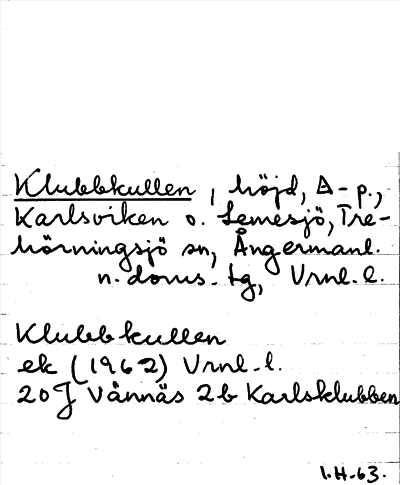 Klubbkullen, höjd, Δ-p.,
Karlsviken o. Lemesjö, Tre-
hörningsjö sn, Ångermanl.
n. doms. tg, Vrnl. l.
Klubbkullen
ek (1962) Vrnl. l.
20J Vännäs 2b Karlsklubben
1.H.63.